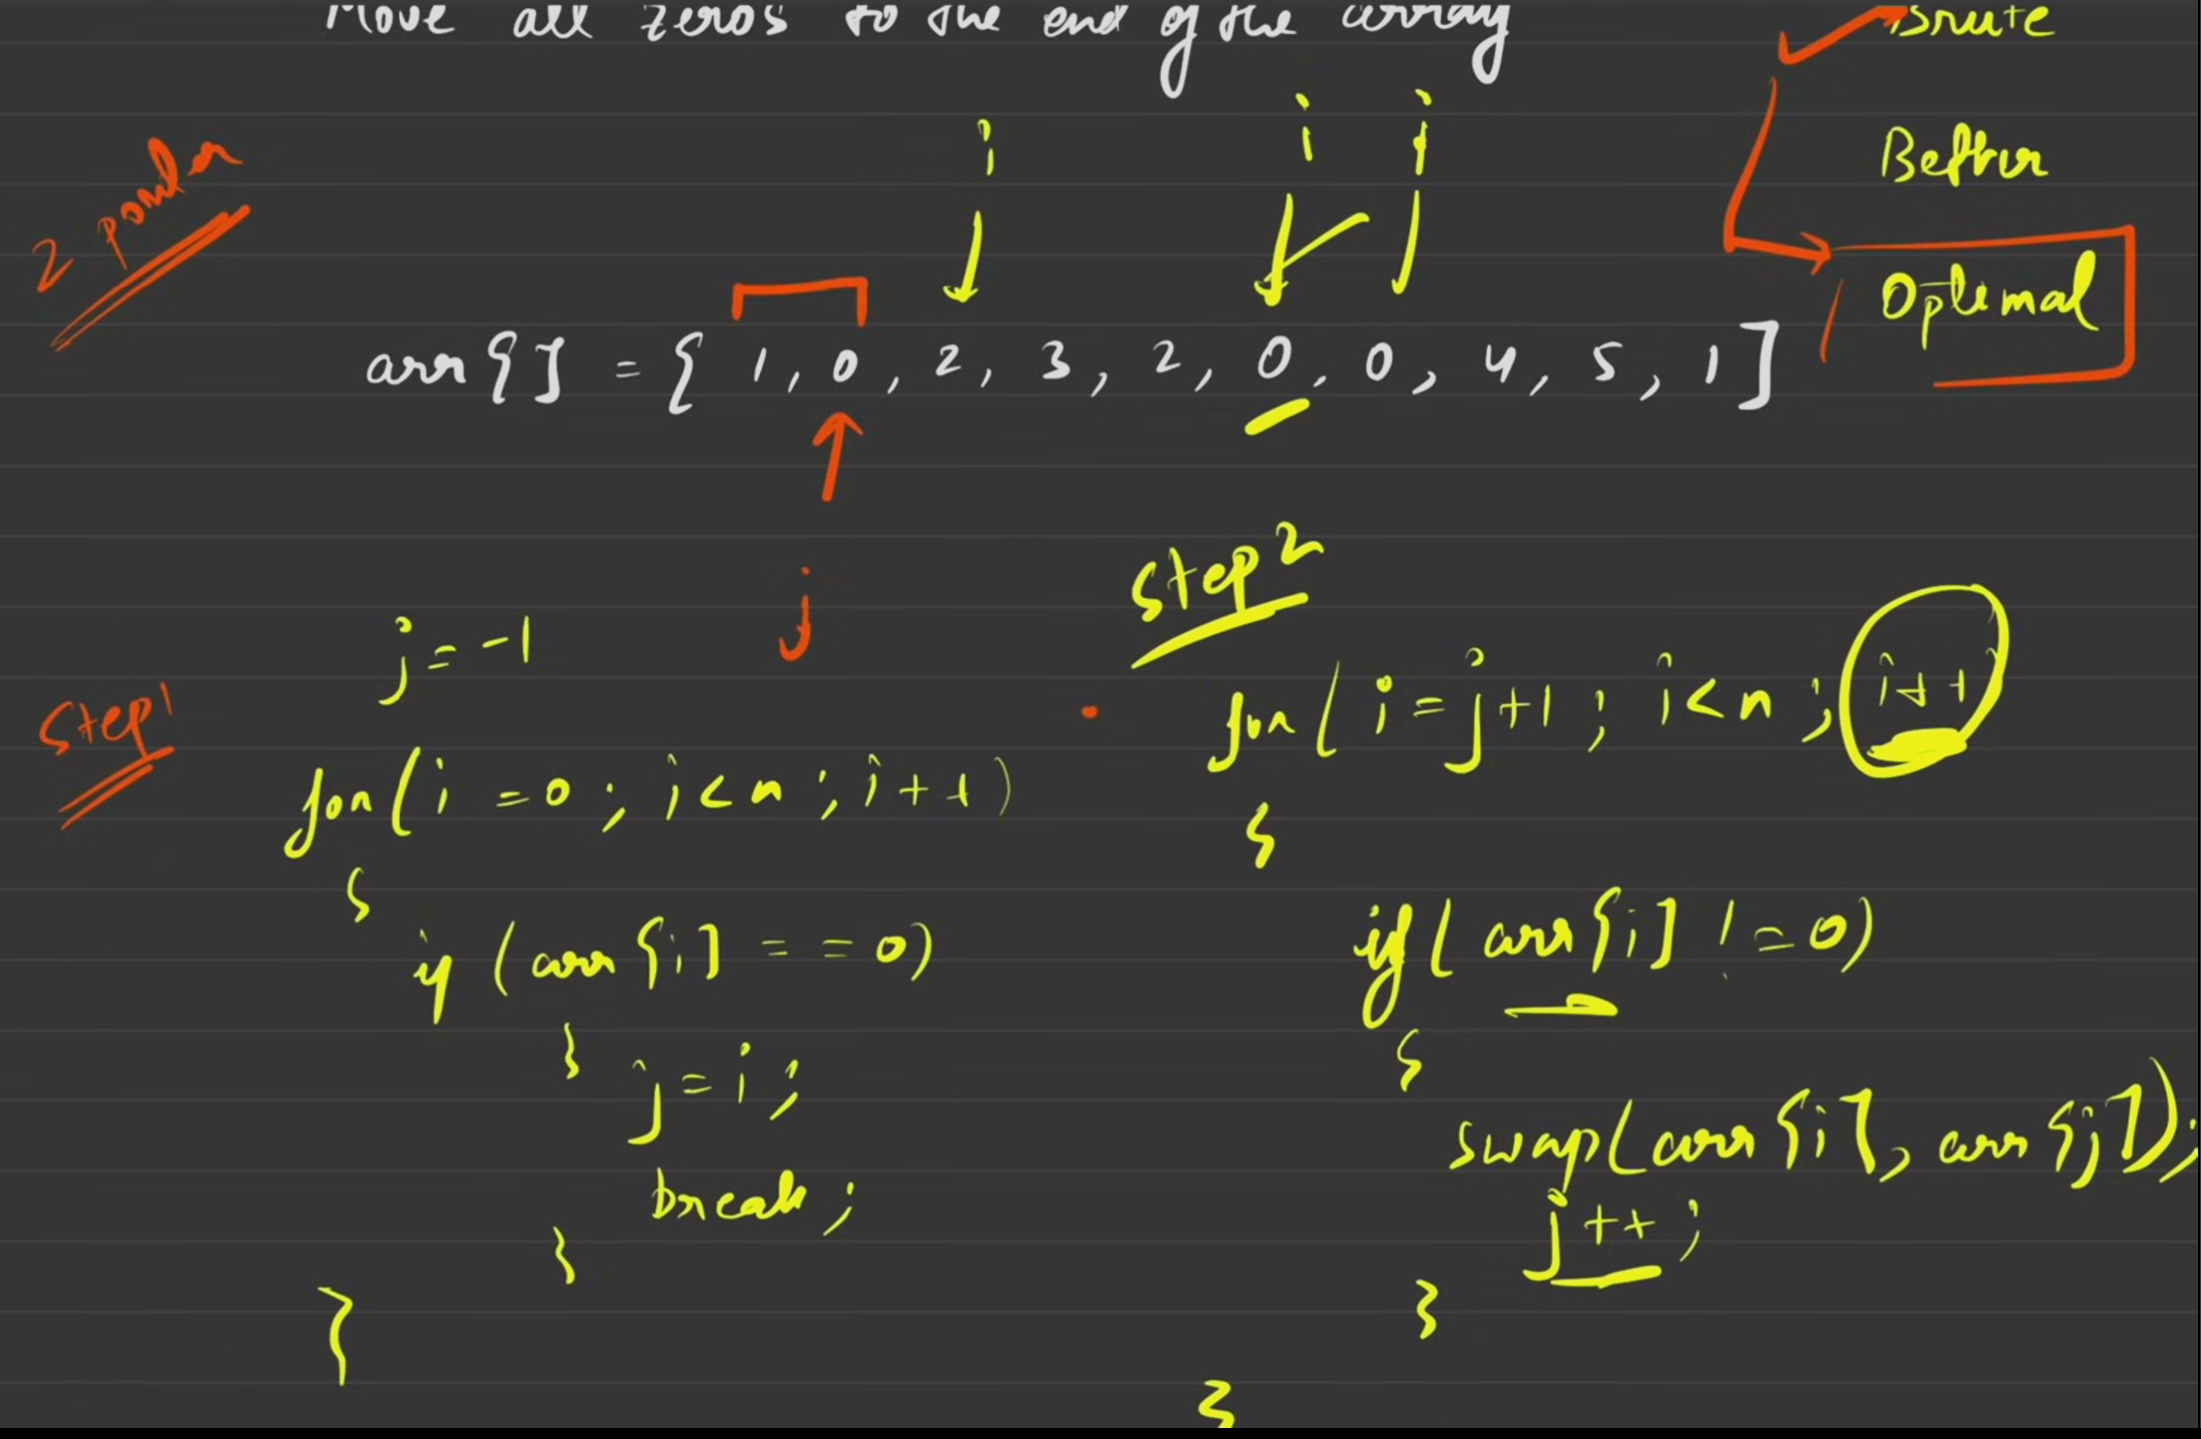 Move all zeros to the end of the array
Brute
Better
Optimal
2 pointer
i
i
i
arr[] = { 1, 0, 2, 3, 2, 0, 0, 4, 5, 1 ]
j
Step 1
j = -1
for( i = 0 ; i < n ; i++ )
{
if (arr[i] == 0)
{
j = i ;
break ;
}
}
Step 2
for( i = j+1 ; i < n ; i++ )
{
if( arr[i] != 0)
{
swap(arr[i], arr[j]);
j++ ;
}
}